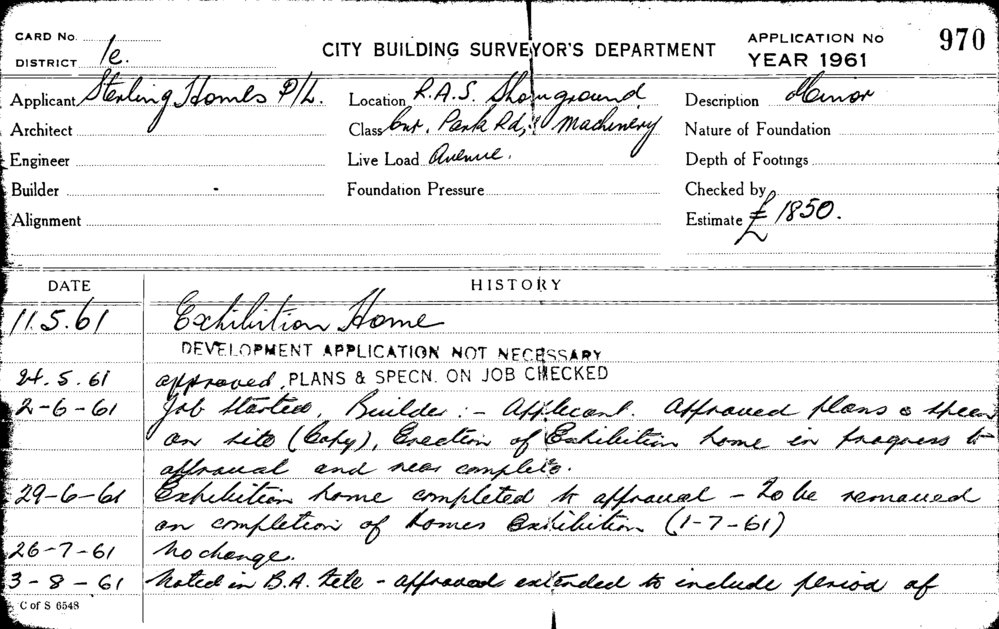 CARD No.
DISTRICT 1e.
CITY BUILDING SURVEYOR'S DEPARTMENT
APPLICATION No 970
YEAR 1961
Applicant Sterling Homes P/L. Location R.A.S. Showground Description Minor
Architect Class Cnr. Park Rd, & Machinery Nature of Foundation
Engineer Live Load Avenue. Depth of Footings
Builder Foundation Pressure Checked by
Alignment Estimate £1850.
DATE HISTORY
11.5.61 Exhibition Home
DEVELOPMENT APPLICATION NOT NECESSARY
24.5.61 approved, PLANS & SPECN. ON JOB CHECKED
2-6-61 Job started, Builder :- Applicant. Approved plans & specn
on site (Copy), Erection of Exhibition home in progress to
approval and near complete.
29-6-61 Exhibition home completed to approval - To be removed
on completion of homes Exhibition (1-7-61)
26-7-61 No change.
3-8-61 Noted in B.A. - approval extended to include period of
C of S 6548